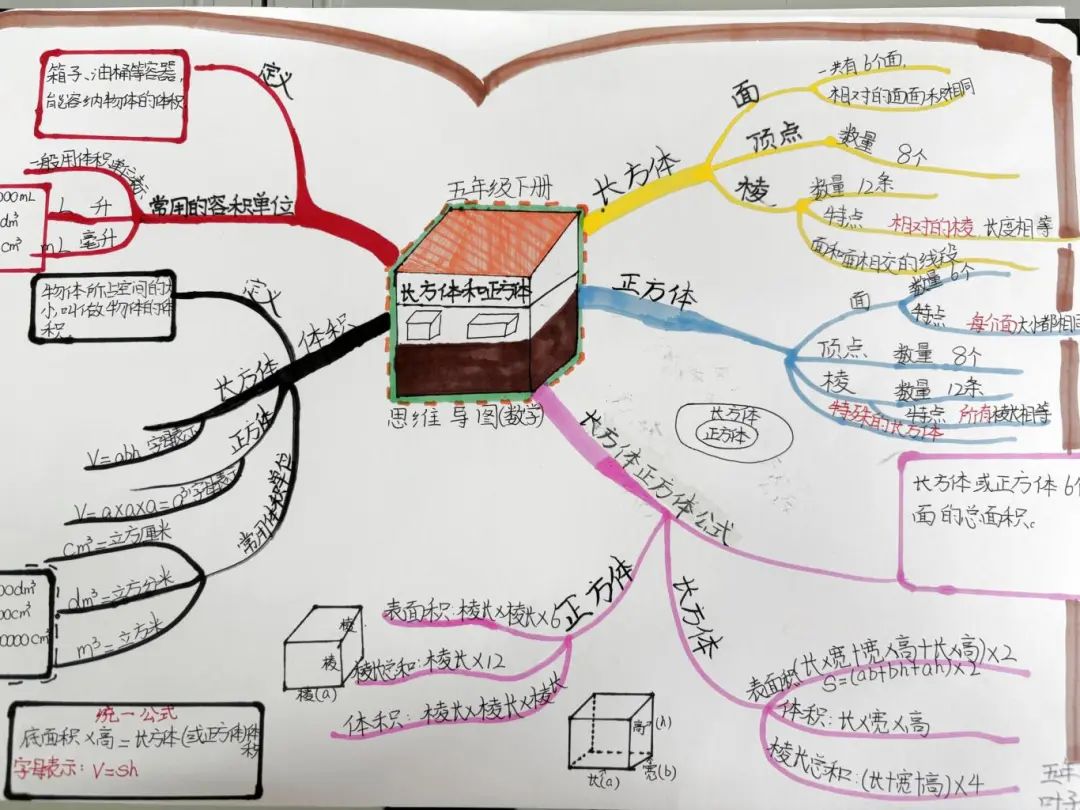 五年级下册
长方体和正方体
思维导图(数学)
长方体
面
一共有6个面,
相对的面面积相同
顶点
数量
8个
棱
数量12条
特点 相对的棱 长度相等
面和面相交的线段
正方体
面
数量6个
特点 每个面大小都相同
顶点 数量 8个
棱 数量12条
特点 所有棱长相等
特殊的长方体
长方体
正方体
长方体正方体公式
长方体或正方体6个
面的总面积。
正方体
表面积:棱长×棱长×6
棱长总和:棱长×12
体积:棱长×棱长×棱长
长方体
表面积(长×宽+宽×高+长×高)×2
S=(ab+bh+ah)×2
体积:长×宽×高
棱长总和:(长+宽+高)×4
棱
棱
棱(a)
高
(h)
长(a)
宽(b)
常用的容积单位
定义
箱子、油桶等容器,
能容纳物体的体积
一般用体积单位
L 升
mL 毫升
000mL
dm³
cm³
体积
定义
物体所占空间的大
小叫做物体的体
积.
长方体
V=abh 字母表示
正方体
V=a×a×a=a³字母表示
常用体积单位
cm³=立方厘米
dm³=立方分米
m³=立方米
00dm³
00cm³
0000cm³
统一公式
底面积×高=长方体(或正方体)体积
字母表示:V=Sh
五年
叶子